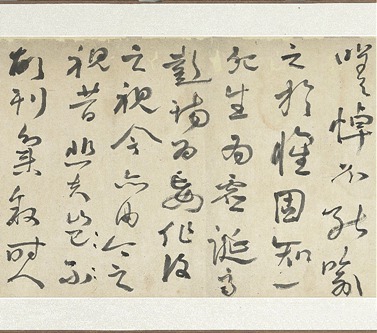 嗟悼不能喻
之於懷固知一
死生為虛誕齊
彭殤為妄作後
之視今亦由今之
視昔悲夫
故列敘時人